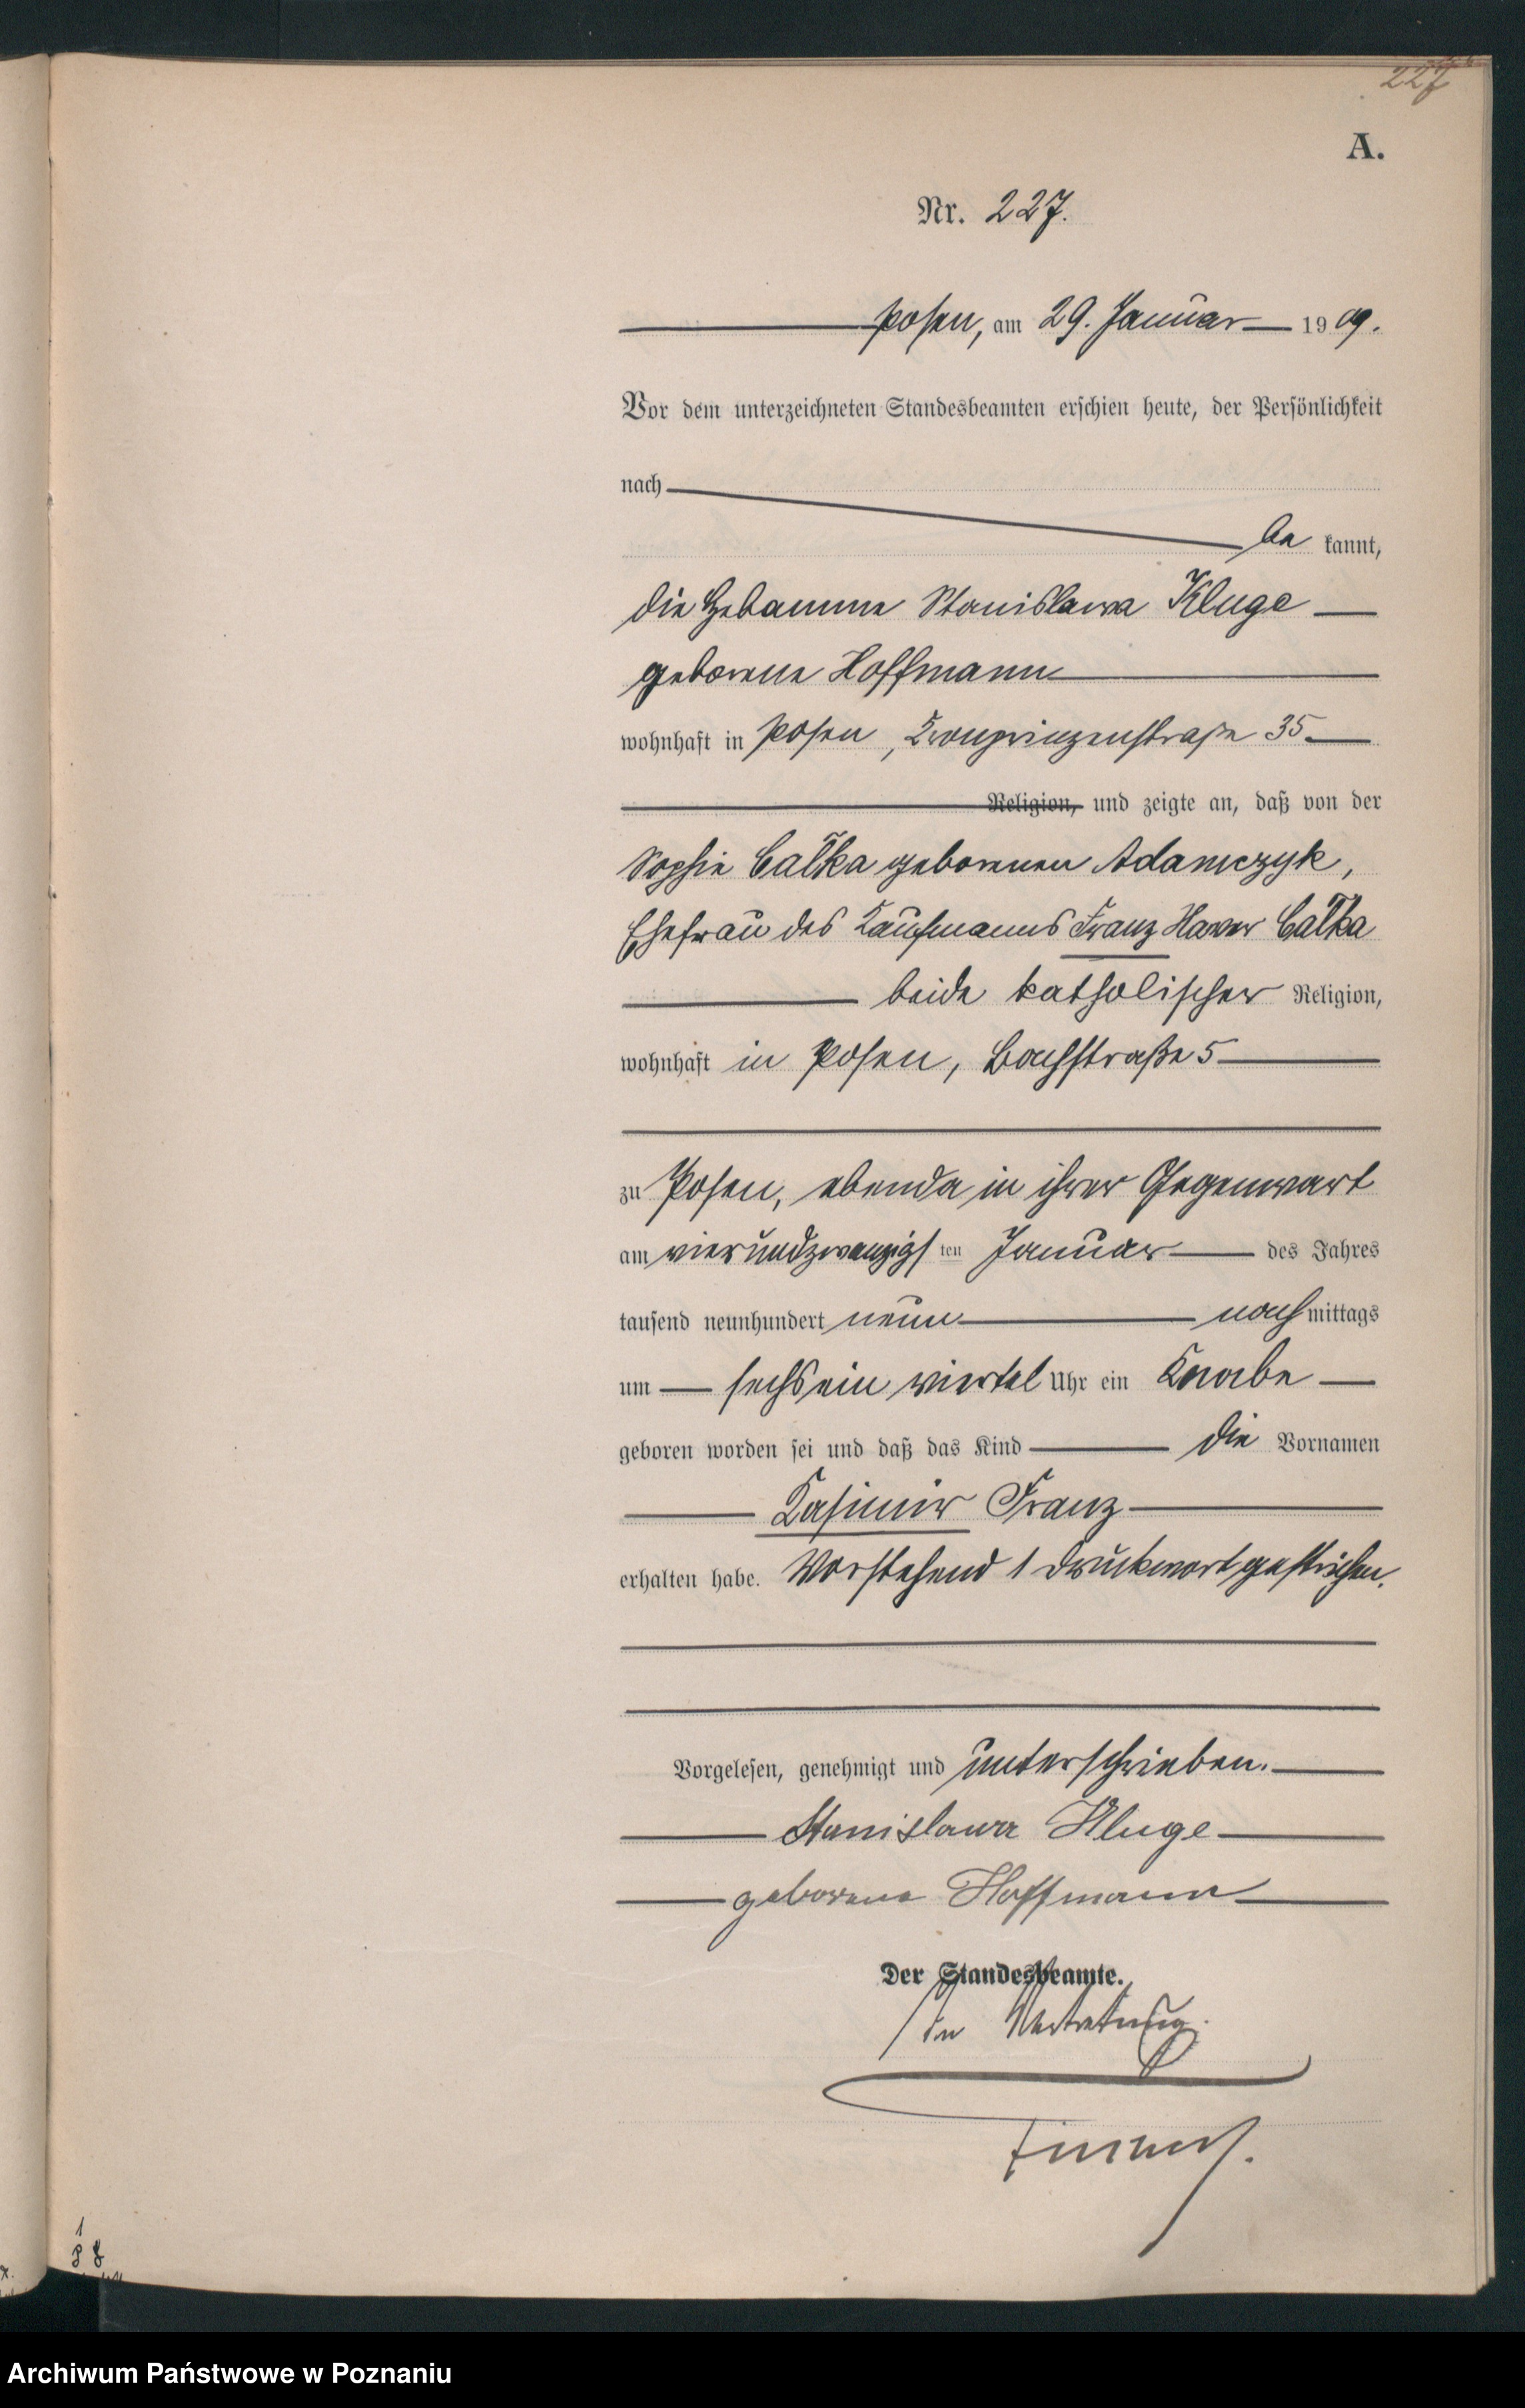 227
A.
Nr. 227.
Posen, am 29. Januar 1909.
Vor dem unterzeichneten Standesbeamten erschien heute, der Persönlichkeit
nach
be kannt,
die Hebamme Stanislawa Kluge
geborene Hoffmann
wohnhaft in Posen, Kronprinzenstraße 35
Religion, und zeigte an, daß von der
Sophie Całka geborenen Adamczyk,
Ehefrau des Kaufmanns Franz Xaver Całka
beide katholischer Religion,
wohnhaft in Posen, Bachstraße 5
zu Posen, ebenda in ihrer Gegenwart
am vierundzwanzigsten Januar des Jahres
tausend neunhundert neun nachmittags
um sechs ein viertel Uhr ein Knabe
geboren worden sei und daß das Kind die Vornamen
Kasimir Franz
erhalten habe. Vorstehend 1 Druckwort gestrichen.
Vorgelesen, genehmigt und unterschrieben.
Stanislawa Kluge
geborene Hoffmann
Der Standesbeamte.
In Vertretung.
1
8 8
Archiwum Państwowe w Poznaniu